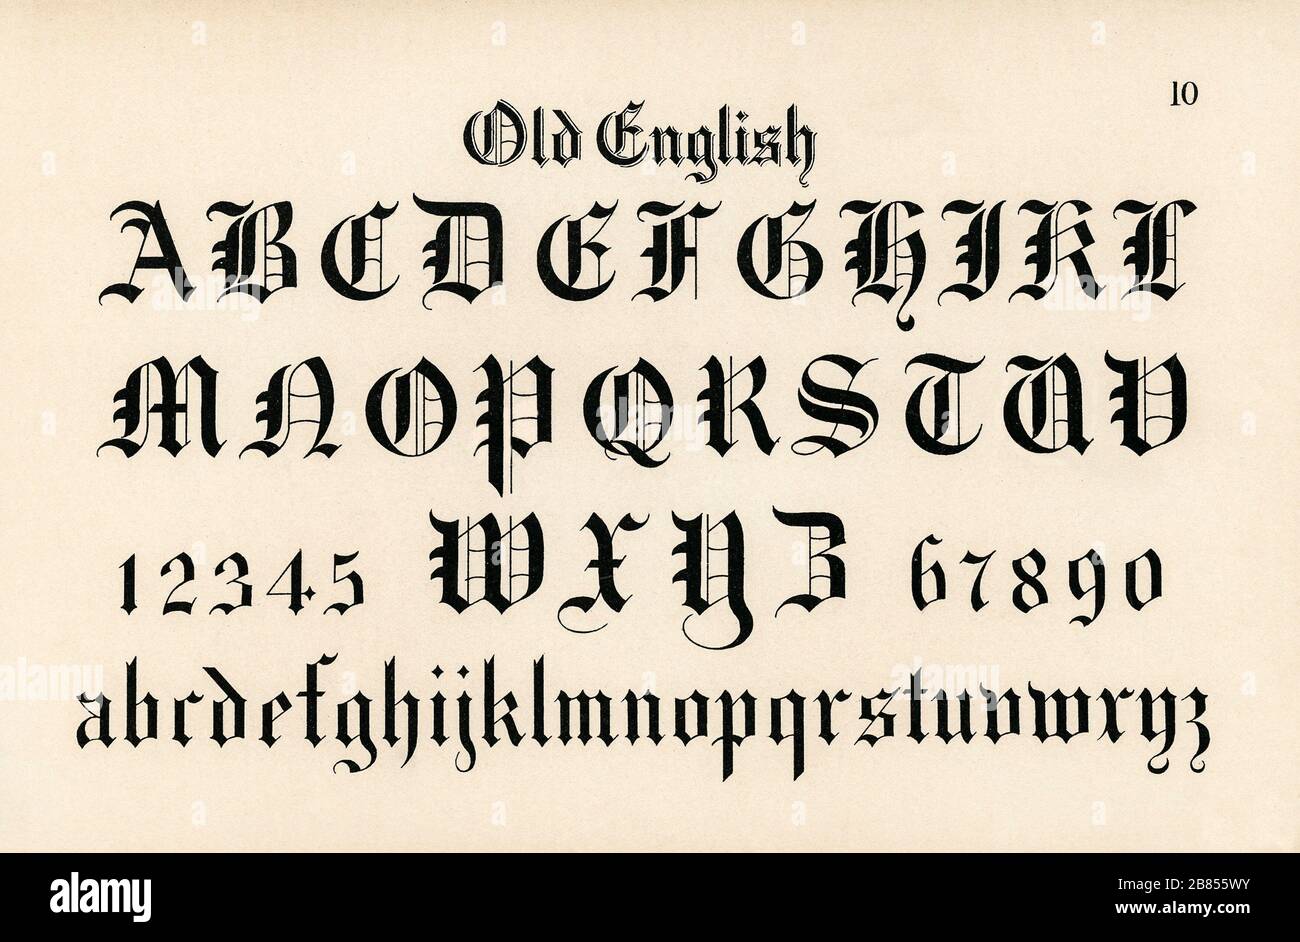 10
Old English
A B C D E F G H I K L
M N O P Q R S T U V
1 2 3 4 5 W X Y Z 6 7 8 9 0
abcdefghijklmnopqrstuvwxyz
alamy
Image ID: 2B855WY
www.alamy.com